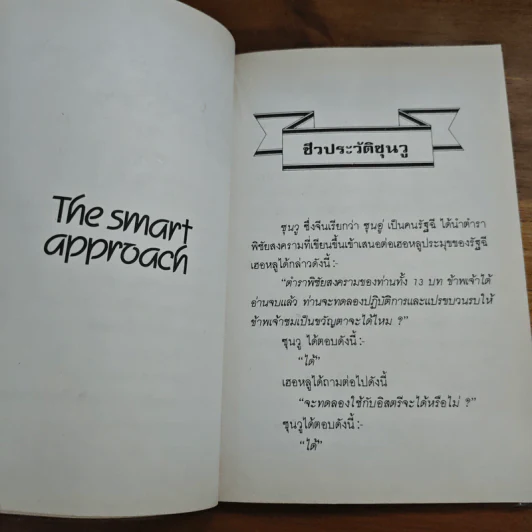 The smart
approach
ชีวประวัติซุนวู
ซุนวู ซึ่งจีนเรียกว่า ซุนอู่ เป็นคนรัฐฉี ได้นำตำรา
พิชัยสงครามที่เขียนขึ้นเข้าเสนอต่อเฮอหลูประมุขของรัฐฉี
เฮอหลูได้กล่าวดังนี้ :-
“ตำราพิชัยสงครามของท่านทั้ง 13 บท ข้าพเจ้าได้
อ่านจบแล้ว ท่านจะทดลองปฏิบัติการและแปรขบวนรบให้
ข้าพเจ้าชมเป็นขวัญตาจะได้ไหม ?”
ซุนวู ได้ตอบดังนี้ :-
“ได้”
เฮอหลูได้ถามต่อไปดังนี้
“จะทดลองใช้กับอิสตรีจะได้หรือไม่ ?”
ซุนวูได้ตอบดังนี้ :-
“ได้”